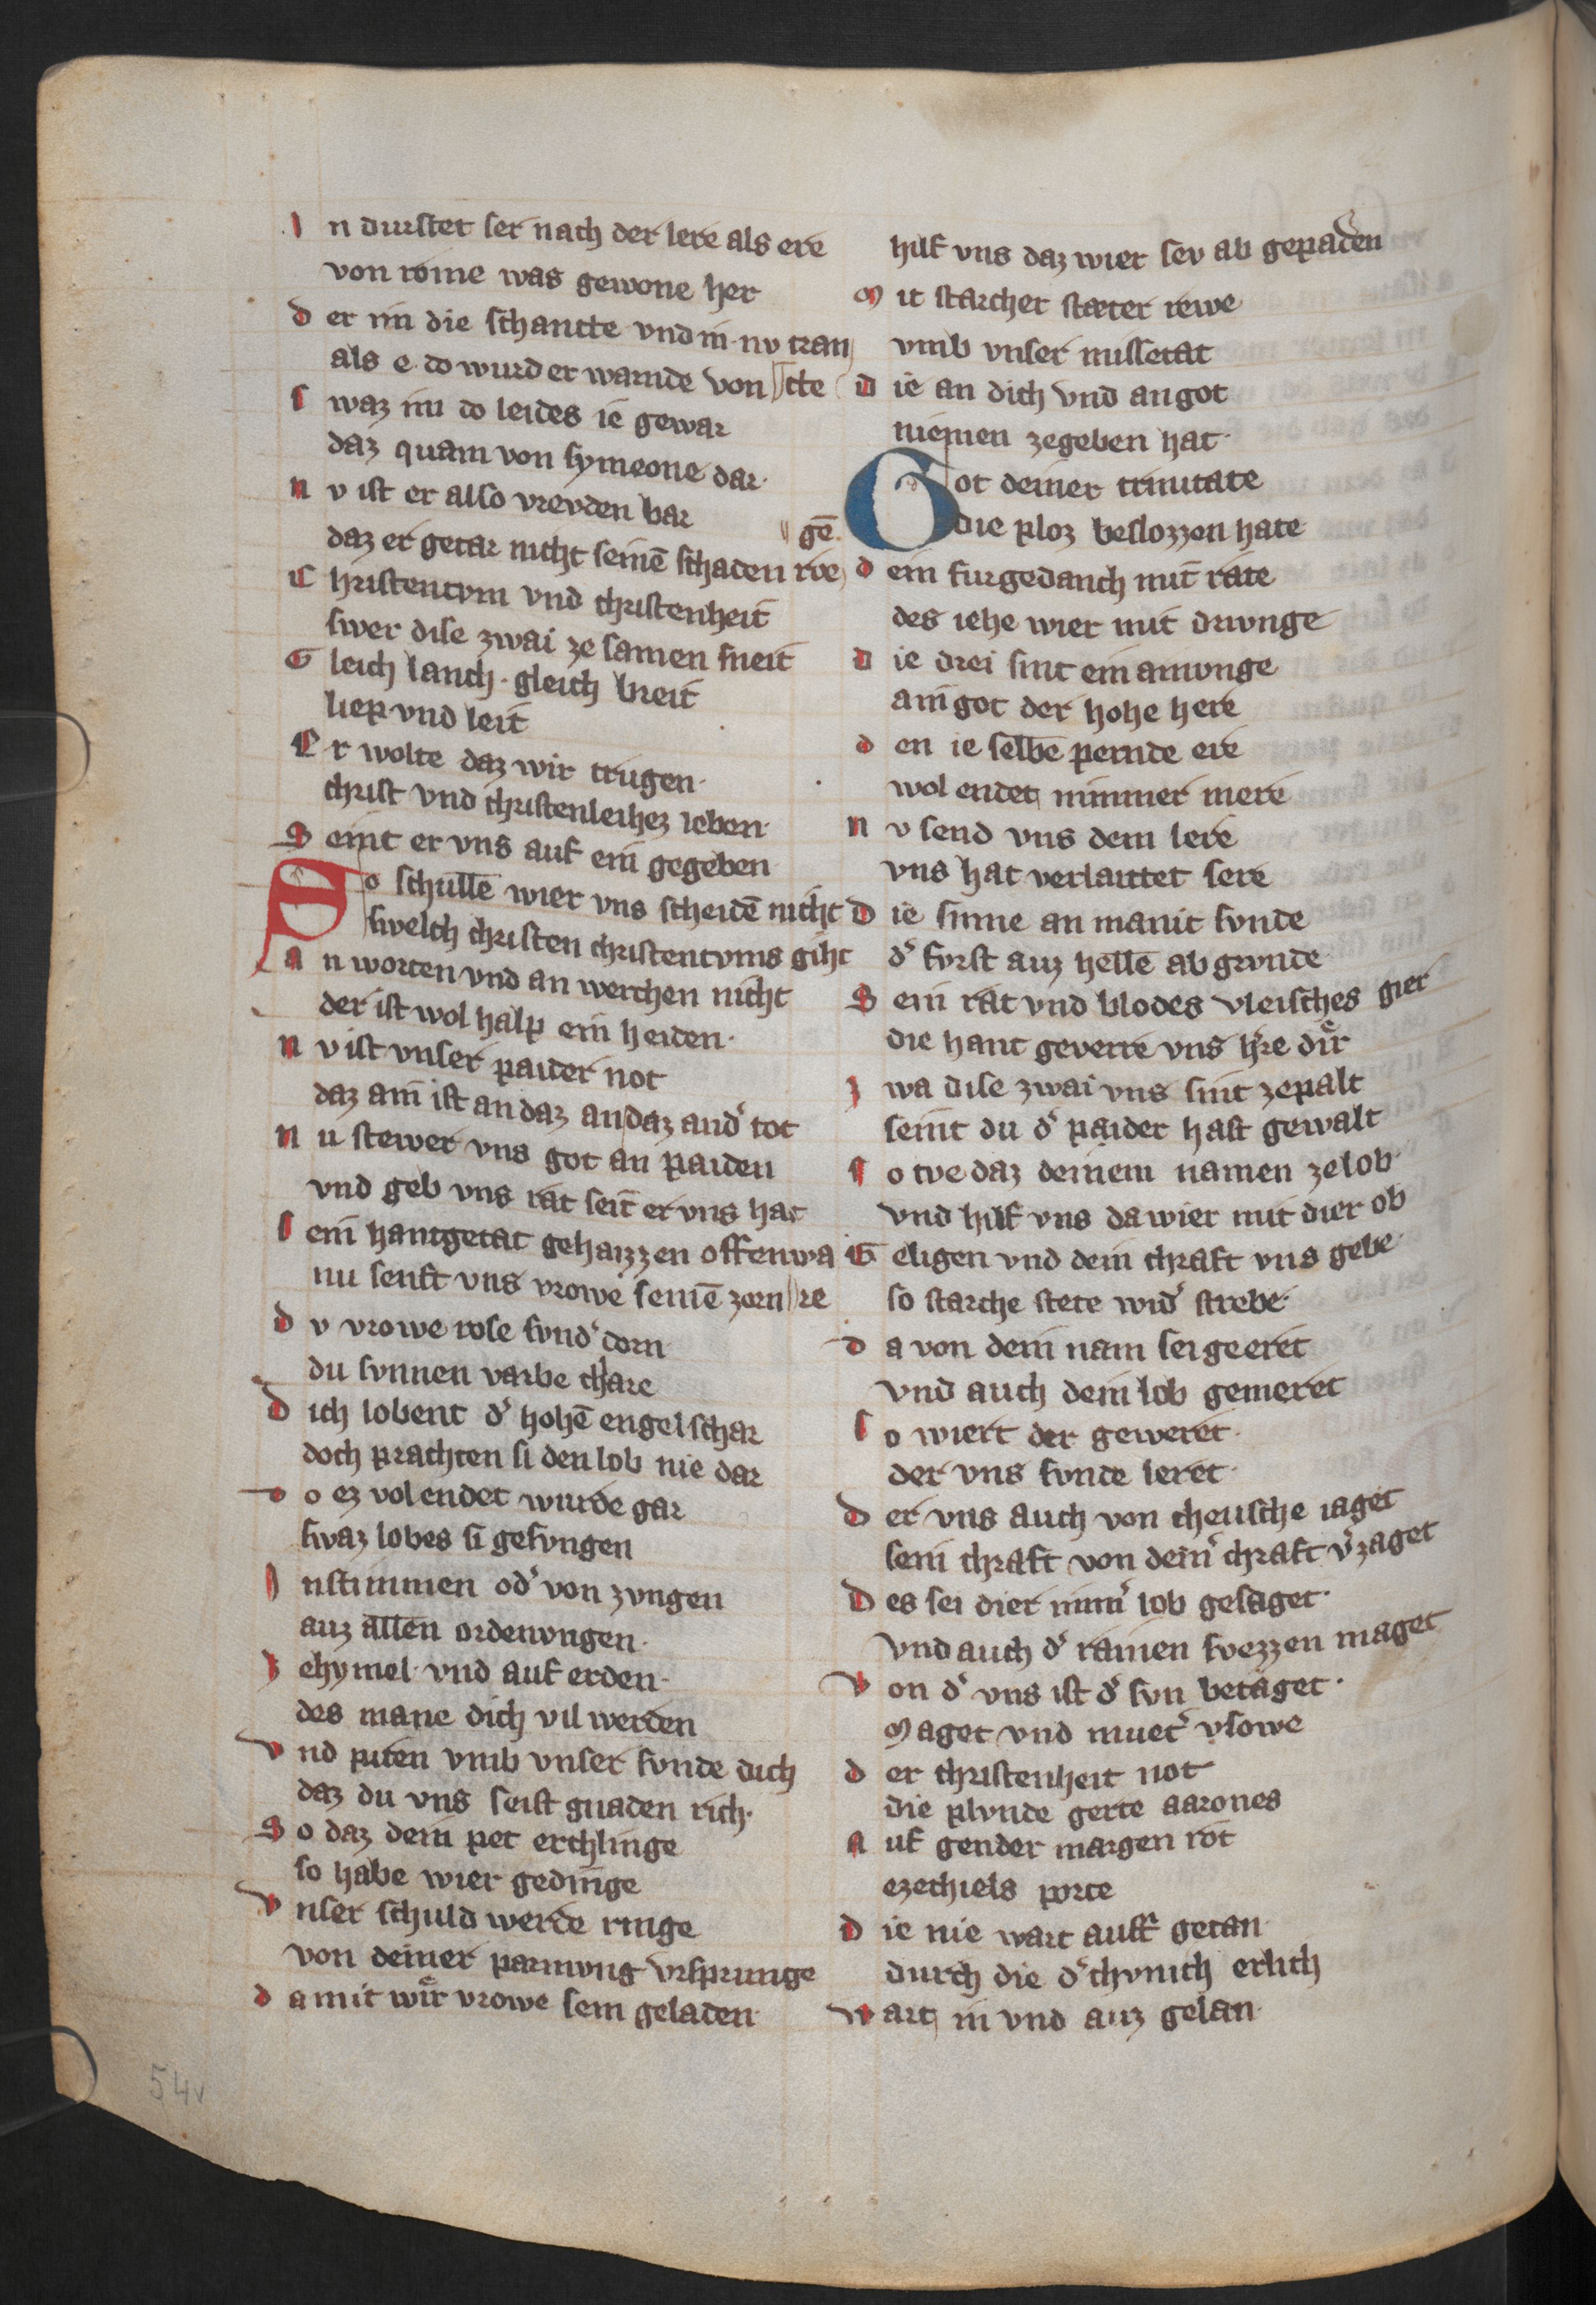 In durstet ser nach der lere als ere
von rome was gewone her
der im die schanctte vnd in nv tran
als e do wurd er warnde von ctte
swaz im do leides ie gewar
daz quam von symeone dar
nv ist er also vrevden bar
gē
daz er getar nicht seinē schaden rve
Christentvm vnd christenheit
swer dise zwai ze samen sneit
Gleich lanch · gleich breit
liep vnd leit
Er wolte daz wir trugen
christ vnd christenleihez leben
Seint er vns auf ein gegeben
So schullē wier vns scheidē nicht
swelch christen christentvms giht
an worten vnd an werchen nicht
der ist wol halp ein heiden ·
nv ist vnser paider not
daz ain ist an daz an daz andˀ tot
nu stewer vns got an paiden
vnd geb vns rat seit er vns hat
sein hantgetat gehaizzen offenwa
nu senft vns vrowe seinē zorn re
dv vrowe rose svndˀ dorn
du svnnen varbe chlare
dich lobent dˀ hohē engel schar
doch prachten si den lob nie dar
do ez vol endet wurde gar
swaz lobes si gesvngen
In stimmen odˀ von zvngen
auz allen ordenvngen ·
zehymel · vnd auf erden ·
des mane dich vil werden
vnd piten vmb vnser svnde dich
daz du vns seist gnaden rich ·
So daz dein pet erchlinge
so habe wier gedinge
vnser schuld werde ringe
von deiner parmvng vrsprunge
da mit wir vrowe sein geladen
hilf vns daz wier sev ab gepaden
Mit starcher stæter rewe
vmb vnser missetat
die an dich vnd an got
niemen zegeben hat ·
Got deiner trinitate
die ploz beslozzen hate
dein furgedanch mit rate
des iehe wier mit drivnge
die drei sint ein ainvnge
ain got der hohe here
den ie selbē pernde ere
wol endet nimmer mere
nv send vns dein lere
vns hat verlaittet sere
Die sinne an manic svnde
dˀ fvrst auz hellē abgrvnde
Sein rat vnd blodes vleisches gier
die hant geverre vns hˀre dir
zwa dise zwai vns sint zepalt
seint du dˀ paider hast gewalt
so tve daz deinem namen zelob
vnd hilf vns da wier mit dier ob
Geligen vnd dein chraft vns gebe
so starche stete widˀ strebe
da von dein nam sei geeret
vnd auch dein lob gemeret
so wiert der geweret ·
der vns svnde leret ·
Der vns auch von cheusche iaget
sein chraft von deinˀ chraft vˀzaget
Des sei dier immˀ lob gesaget ·
vnd auch dˀ rainen svezzen maget
von dˀ vns ist dˀ svn betaget ·
Maget vnd muetˀ vrowe
der christenheit not
die plvnde gerte aarones
auf gender margen rot
ezechiels porte
die nie wart auff getan
durch die dˀ chvnich erlich
wart in vnd auz gelan
54v